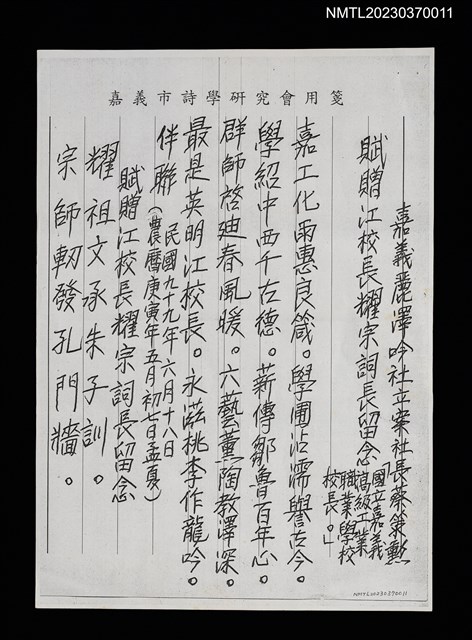 NMTL20230370011
嘉義市詩學研究會用箋
嘉義麗澤吟社立案社長蔡策勳
賦贈江校長耀宗詞長留念
「國立嘉義
高級工業
職業學校
校長。」
嘉工化雨惠良箴。學圃沾濡譽古今。
學紹中西千古德。薪傳鄒魯百年心。
群師啓廸春風暖。六藝薰陶教澤深。
最是英明江校長。永滋桃李作龍吟。
伴聯（民國九十九年六月十八日
農曆庚寅年五月初七日孟夏）
賦贈江校長耀宗詞長留念
耀祖文承朱子訓。
宗師軔發孔門牆。
NMTL20230370011